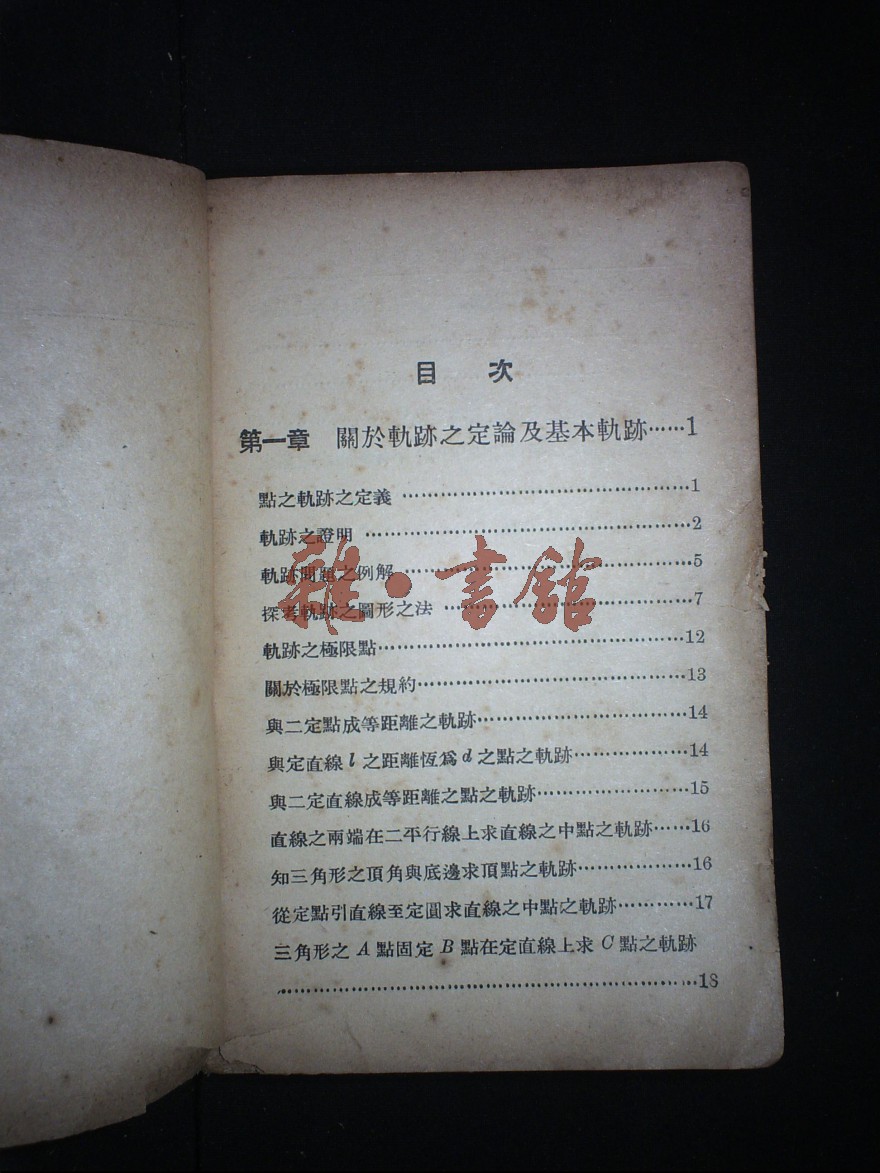 目 次
第一章 關於軌跡之定論及基本軌跡……1
點之軌跡之定義 ……………………………………1
軌跡之證明 …………………………………………2
軌跡問題之例解 ……………………………………5
探考軌跡之圖形之法 ………………………………7
軌跡之極限點………………………………………12
關於極限點之規約…………………………………13
與二定點成等距離之軌跡…………………………14
與定直線 l 之距離恆爲 d 之點之軌跡……………14
與二定直線成等距離之點之軌跡…………………15
直線之兩端在二平行線上求直線之中點之軌跡……16
知三角形之頂角與底邊求頂點之軌跡……………16
從定點引直線至定圓求直線之中點之軌跡………17
三角形之 A 點固定 B 點在定直線上求 C 點之軌跡
………………………………………………………18
雜·書館